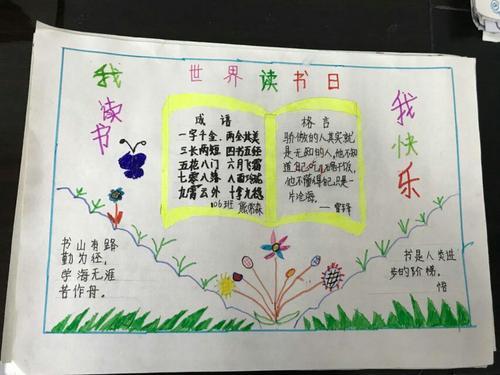 世界读书日
我读书
我快乐
成语
一字千金 两全其美
三长两短 四书五经
五花八门 六月飞霜
七零八落 八面玲珑
九霄云外 十拿九稳
106班
格言
骄傲的人其实就
是无知的人,他不知
道自己
他不懂得自己只是一
片沧海。
书山有路
勤为径,
学海无涯
苦作舟。
书是人类进
步的阶梯。